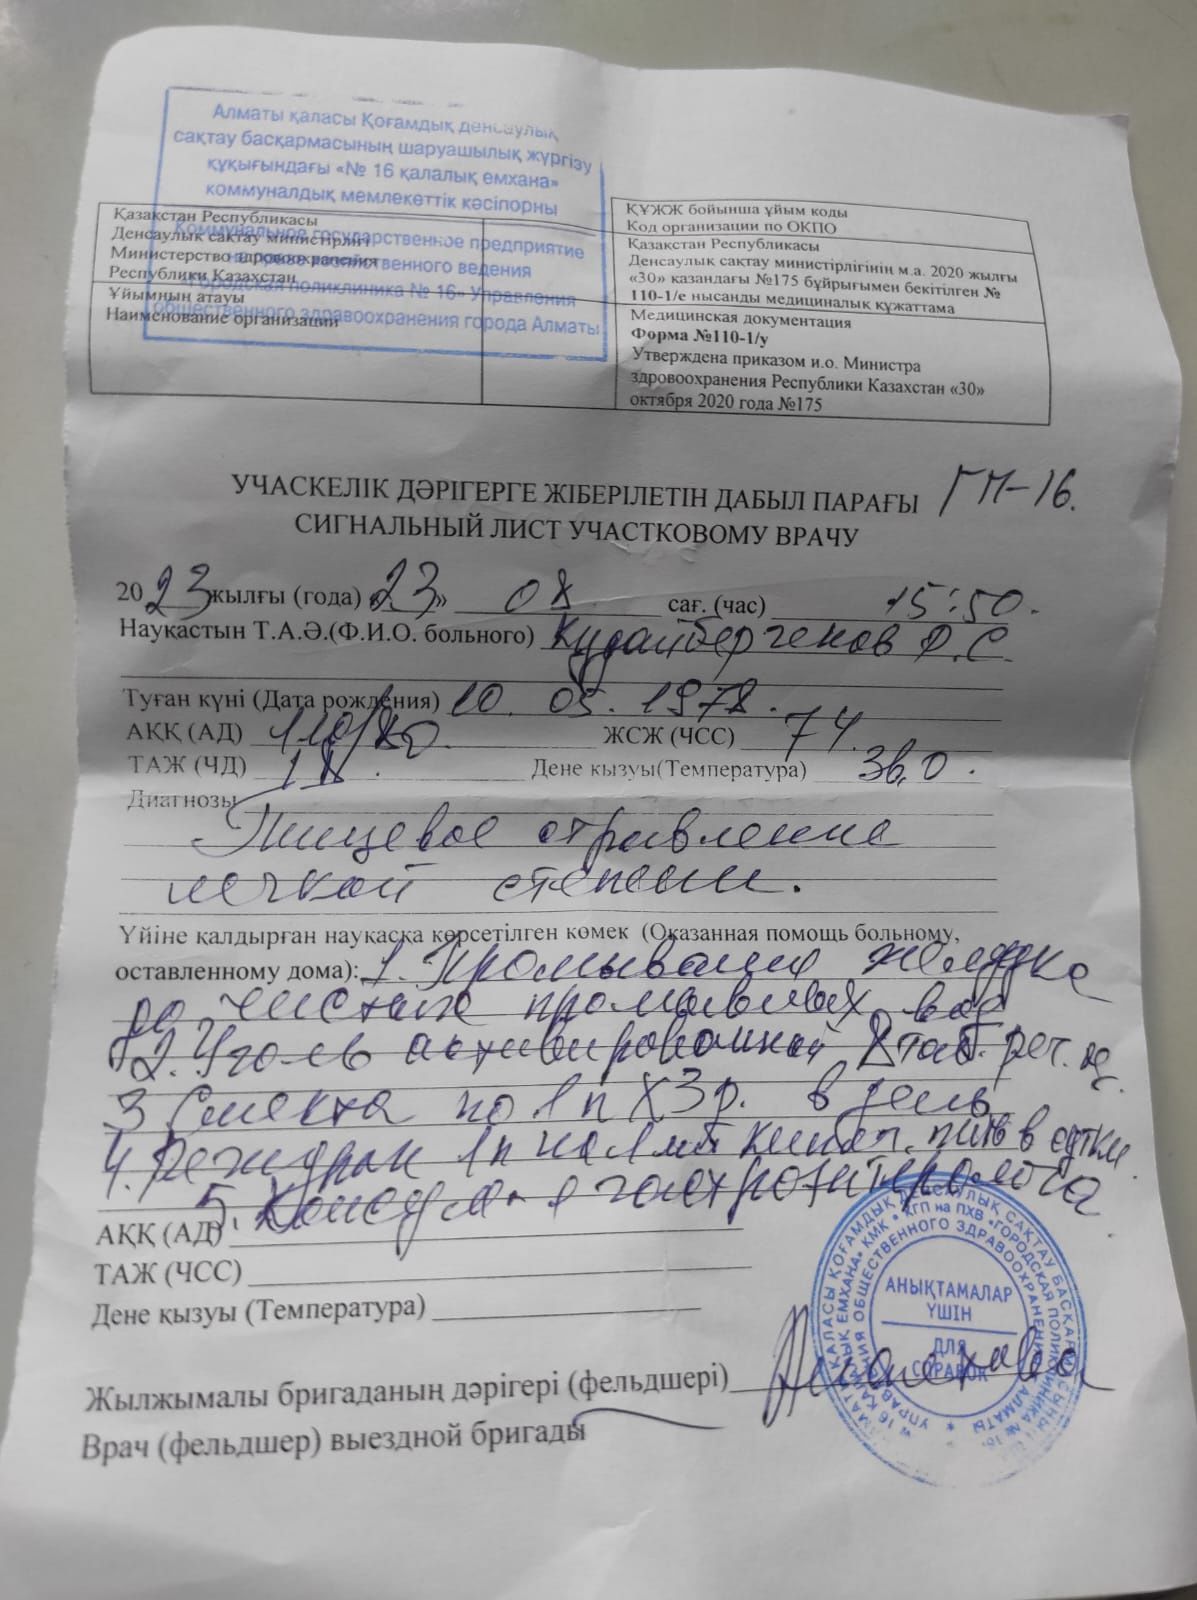 Алматы қаласы Қоғамдық денсаулық
сақтау басқармасының шаруашылық жүргізу
құқығындағы «№ 16 қалалық емхана»
коммуналдық мемлекеттік кәсіпорны
Коммунальное государственное предприятие
на праве хозяйственного ведения
«Городская поликлиника № 16» Управления
общественного здравоохранения города Алматы
Қазақстан Республикасы
Денсаулық сақтау министірлігі
Министерство здравоохранения
Республики Казахстан
Ұйымның атауы
Наименование организации
ҚҰЖЖ бойынша ұйым коды
Код организации по ОКПО
Қазакстан Республикасы
Денсаулық сақтау министірлігінің м.а. 2020 жылғы
«30» казандағы №175 бұйрығымен бекітілген №
110-1/е нысанды медициналық құжаттама
Медицинская документация
Форма №110-1/у
Утверждена приказом и.о. Министра
здровоохранения Республики Казахстан «30»
октября 2020 года №175
УЧАСКЕЛІК ДӘРІГЕРГЕ ЖІБЕРІЛЕТІН ДАБЫЛ ПАРАҒЫ ГП-16.
СИГНАЛЬНЫЙ ЛИСТ УЧАСТКОВОМУ ВРАЧУ
20 23 жылғы (года) «23» 08 сағ. (час) 15:50.
Науқастың Т.А.Ә.(Ф.И.О. больного) Кудайбергенов Д.С.
Туған күні (Дата рождения) 10. 05. 1978.
АҚҚ (АД) 110/80. ЖСЖ (ЧСС) 74.
ТАЖ (ЧД) 18. Дене кызуы(Температура) 36,0.
Диагнозы
Пищевое отравление
легкой степени.
Үйіне қалдырған науқасқа көрсетілген көмек (Оказанная помощь больному,
оставленному дома): 1. Промывание желудка
до чистых промывных вод
2. Уголь активированный 8 таб. per. os.
3 Смекта по 1 п X 3 р. в день
4. Регидрон 1 п на 1 лит кипяч. пить в сутки
5. Консульт-я гастроэнтеролога
АҚҚ (АД)
ТАЖ (ЧСС)
Дене қызуы (Температура)
Жылжымалы бригаданың дәрігері (фельдшері)
Врач (фельдшер) выездной бригады
АНЫҚТАМАЛАР
ҮШІН
ДЛЯ
СПРАВОК